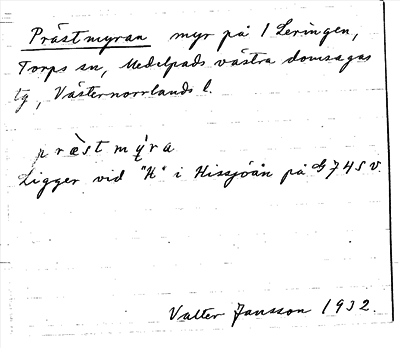 Prästmyran myr på 1 Leringen,
Torps sn, Medelpads västra domsagas
tg, Västernorrlands l.
præ̀stmy� ̀ra
Ligger vid "H" i Hissjöån på G 74 S V.
Valter Jansson 1932.